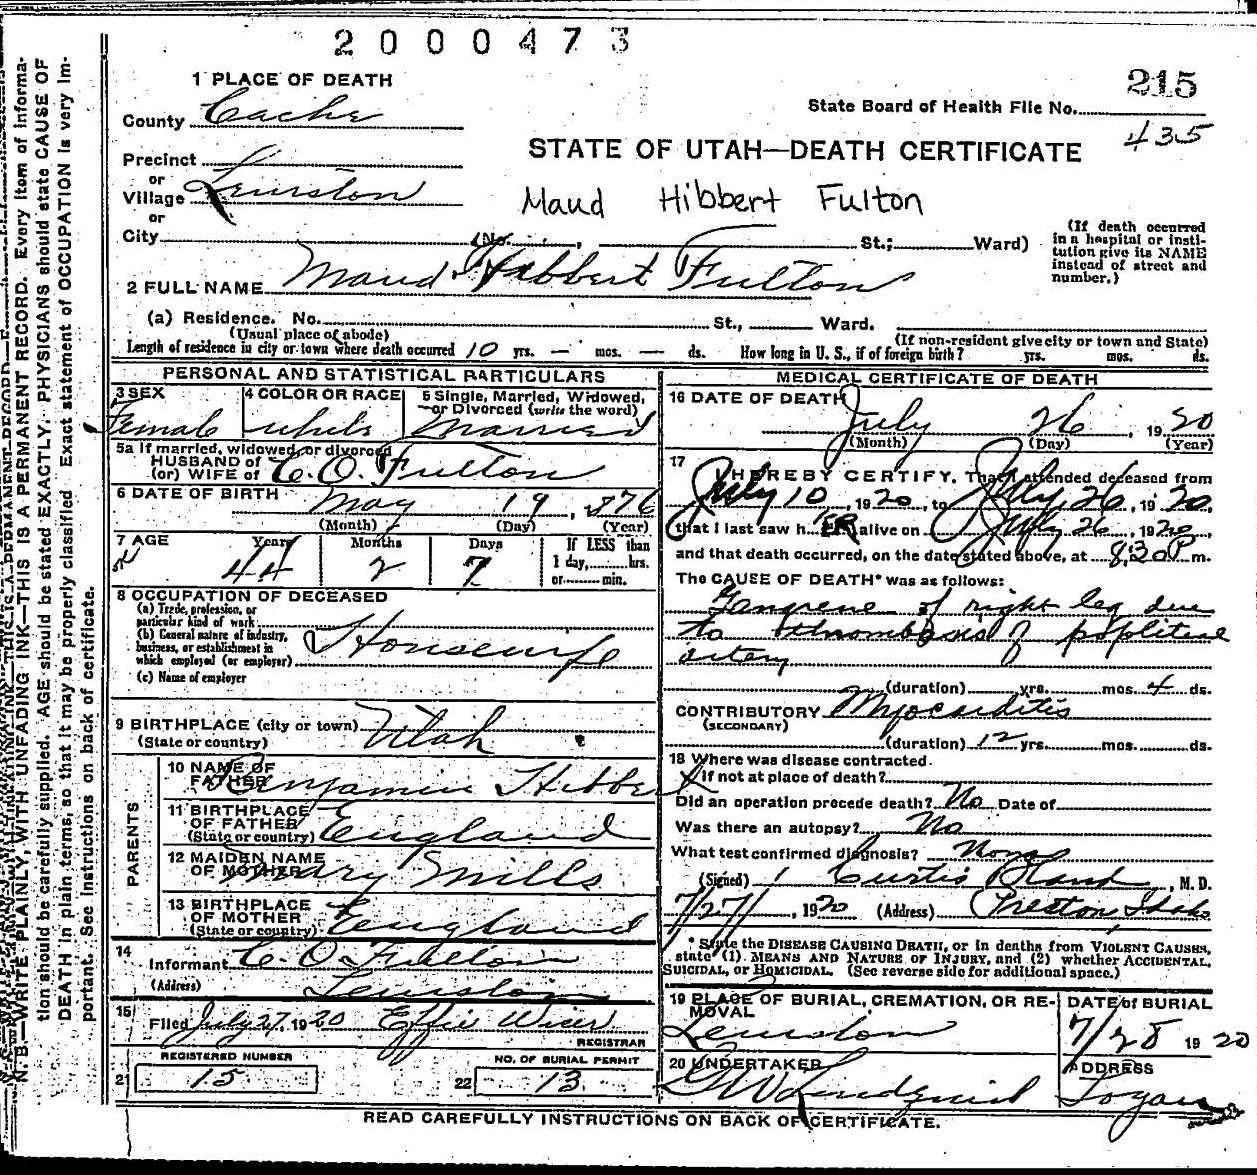 2 0 0 0 4 7 3
1 PLACE OF DEATH
215
County Cache
State Board of Health File No.
435
STATE OF UTAH—DEATH CERTIFICATE
Precinct
or
Village Lewiston
or
Maud Hibbert Fulton
City (No. , St.; Ward)
(If death occurred in a hospital or institution give its NAME instead of street and number.)
2 FULL NAME Maud Hibbert Fulton
(a) Residence. No. St., Ward.
(Usual place of abode)
(If non-resident give city or town and State)
Length of residence in city or town where death occurred 10 yrs. — mos. — ds. How long in U. S., if of foreign birth? yrs. mos. ds.
PERSONAL AND STATISTICAL PARTICULARS
3 SEX
Female
4 COLOR OR RACE
white
5 Single, Married, Widowed,
or Divorced (write the word)
Married
5a If married, widowed, or divorced
HUSBAND of
(or) WIFE of C. O. Fulton
6 DATE OF BIRTH May 19, 876
(Month) (Day) (Year)
7 AGE Years Months Days
44 2 7
If LESS than
1 day, hrs.
or min.
8 OCCUPATION OF DECEASED
(a) Trade, profession, or
particular kind of work
(b) General nature of industry,
business, or establishment in
which employed (or employer)
Housewife
(c) Name of employer
9 BIRTHPLACE (city or town)
(State or country)
Utah
PARENTS
10 NAME OF
FATHER Benjamin Hibbert
11 BIRTHPLACE
OF FATHER
(State or country) England
12 MAIDEN NAME
OF MOTHER Mary Mills
13 BIRTHPLACE
OF MOTHER
(State or country) England
14
Informant C. O. Fulton
(Address) Lewiston
15
Filed July 27, 1920 Effie Wiser
REGISTRAR
REGISTERED NUMBER
21 15
NO. OF BURIAL PERMIT
22 13
MEDICAL CERTIFICATE OF DEATH
16 DATE OF DEATH
July 26, 1920
(Month) (Day) (Year)
17
I HEREBY CERTIFY, That I attended deceased from
July 10 1920, to July 26, 1920,
that I last saw h ER alive on July 26, 1920
and that death occurred, on the date stated above, at 8:30 P m.
The CAUSE OF DEATH* was as follows:
Gangrene of right leg due
to thrombosis of popliteal
artery
(duration) yrs. mos. 4 ds.
CONTRIBUTORY Myocarditis
(SECONDARY)
(duration) 12 yrs. mos. ds.
18 Where was disease contracted
if not at place of death?
Did an operation precede death? No Date of
Was there an autopsy? No
What test confirmed diagnosis? None
(Signed) Curtis Bland, M. D.
7/27/, 1920 (Address) Preston, Idaho
* State the DISEASE CAUSING DEATH, or in deaths from VIOLENT CAUSES,
state (1) MEANS AND NATURE OF INJURY, and (2) whether ACCIDENTAL,
SUICIDAL, or HOMICIDAL. (See reverse side for additional space.)
19 PLACE OF BURIAL, CREMATION, OR REMOVAL
Lewiston
DATE of BURIAL
7/28 1920
20 UNDERTAKER
G W Lindquist
ADDRESS
Logan
READ CAREFULLY INSTRUCTIONS ON BACK OF CERTIFICATE.
N. B.—WRITE PLAINLY, WITH UNFADING INK—THIS IS A PERMANENT RECORD. Every item of information should be carefully supplied. AGE should be stated EXACTLY. PHYSICIANS should state CAUSE OF
DEATH in plain terms, so that it may be properly classified. Exact statement of OCCUPATION is very important. See instructions on back of certificate.